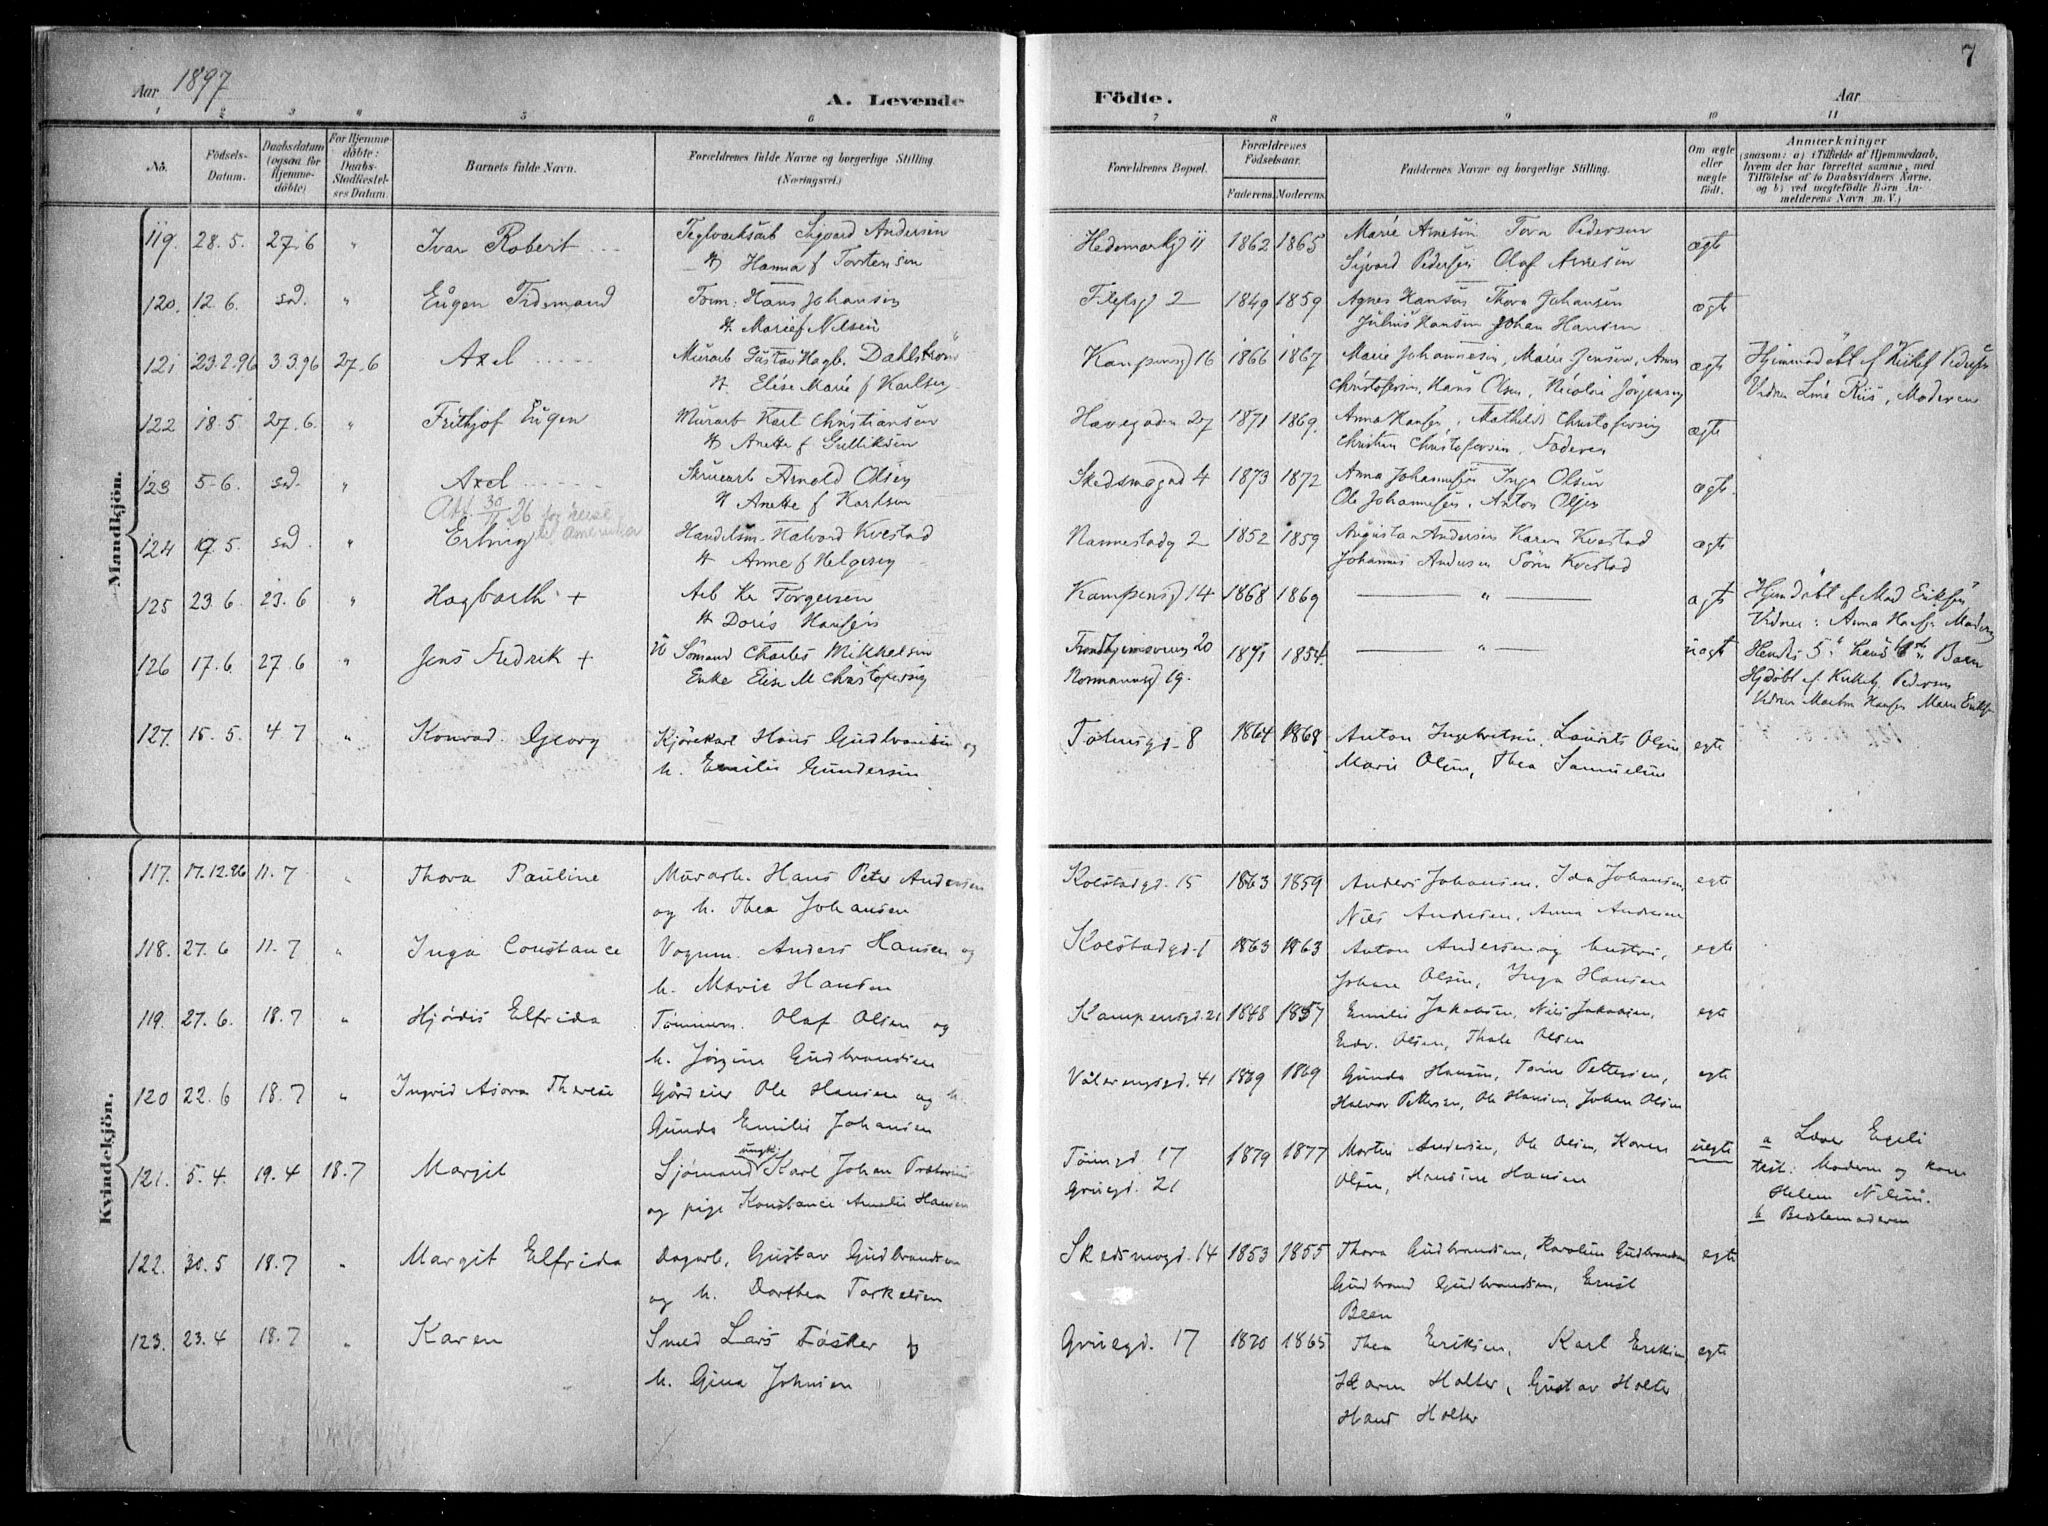 7
Aar 1897
A. Levende
Födte.
Aar
1 2 3 4 5 6 7 8 9 10 11
No.
Födsels-Datum.
Daabsdatum (ogsaa for Hjemmedöbte)
For Hjemmedöbte: Daabs-Stadfæstelses Datum.
Barnets fulde Navn.
Forældrenes fulde Navne og borgerlige Stilling. (Næringsvei.)
Forældrenes Bopæl.
Forældrenes Födselsaar.
Faderens. Moderens.
Faddernes Navne og borgerlige Stilling.
Om ægte eller uægte födt.
Anmærkninger
(saasom: a) i Tilfælde af Hjemmedaab, hvem der har forrettet samme, med Tilföielse af to Daabsvidners Navne, og b) ved uegtefödte Börn Anmelderens Navn m. V.)
Mandkjön.
119. 28.5. 27.6 " Ivar Robert Teglværksarb Sigvard Andersen Hedemarkgd 11 1862 1865 Marie Arnesen Tora Pedersen ægte
H Hanna f Torstensen Sigvard Pedersen Olaf Arnesen
120. 12.6. sd. " Eugen Tidemand Tøm. Hans Johansen 2 1849 1859 Agnes Hansen Thora Johansen ægte
H. Marie f Nilsen Julius Hansen Johan Hansen
121 23.2.96 3.3.96 27.6 Axel Murarb Gustav Hagb. Dahlstrøm Kampensgd 16 1866 1867 Marie Johannesen, Marie Jensen, Anna ægte Hjemmedøbt af Kirket Pedersen
H Elise Marie f Karlsen Christofersen, Hans Olsen, Nicolai Jørgensen Vidner Line Riis, Moderen
122 18.5 27.6. " Frithjof Eugen Murarb Karl Christiansen Havegaden 27 1871 1869. Anna Hansen, Mathilde Christofersen ægte
H Anette f Gulliksen Christian Christofersen. Faderen
123 5.6. sd. " Axel Skruearb Arnold Olsen Skedsmogad 4 1873 1872 Anna Johannesen Inga Olsen ægte.
Att. 30/11 26 for reise til Amerika
H Anette f Karlsen Ole Johannesen, Anton Olsen
124 17.5. sd. " Erling Handelsm. Halvord Kvestad Nannestadg 2 1852 1859 Augusta Andersen Karen Kvestad ægte
H Anne f Helgesen Johannes Andersen Søren Kvestad
125 23.6. 23.6 " Hagbarth + Arb Kr Torgersen Kampensgd 14 1868 1869 " ægte Hjemdøbt af Mad Eriksen
H Doris Hansen Vidner: Anna Hansen Moderen
126 17.6. 27.6 " Jens Fredrik + Sømand Charles Mikkelsen Trondhjemsveien 20 1871 1854. " uægte Hendes 5te Hans 1ste Barn
Enke Elise M Christofersen Normannsgd 19. Hjdøbt af Kirket Pedersen
Vidner Martin Hansen Marie Eriksen
127. 15.5. 4.7 " Konrad Georg Kjørekarl Hans Gudbrandsen og Tøiensgd. 8 1864 1868. Anton Ingebritsen, Laurits Olsen egte
h. Emilie Gundersen Marie Olsen, Thea Samuelsen
Kvindekjön.
117. 17.12.96 11.7 " Thora Pauline Murarb. Hans Peter Andersen Kolstadgd. 15 1863 1859 Anders Johansen, Ida Johansen, egte
og h. Thea Johansen Nils Andersen, Anna Andersen
118. 27.6 11.7 " Inga Constance Vognm. Anders Hansen og Kolstadgd. 1 1863 1863 Anton Andersen og hustru, egte
h. Marie Hansen Johan Olsen, Inga Hansen
119. 27.6. 18.7 " Hjördis Elfrida Tømmerm. Olaf Olsen og Kampensgd. 21 1848 1857 Emilie Jakobsen, Nils Jakobsen, egte
h. Jørgine Gudbrandsen Edv. Olsen, Thale Olsen
120 22.6 18.7 " Ingrid Asora Therese Gårdeier Ole Hansen og h. Vålerengsgd. 41 1869 1869 Gunda Hansen, Torine Pettersen, egte
Gunda Emilie Johansen Halvor Pettersen, Ole Hansen, Johan Olsen
121. 5.4. 19.4 18.7 Margit Sjømand ungk. Karl Johan Prætorius Tøiengd. 17 1879 1877 Martin Andersen, Ole Olsen, Karen uegte a Læver Egeli
og pige Konstance Amalie Hansen Gruegd. 21 Olsen, Handine Hansen test: Moderen og kone
Helene Nilsen.
b Bedstemoderen
122. 30.5 18.7 " Margit Elfrida Dagarb. Gustav Gudbrandsen Skedsmogd. 14 1853 1855 Thora Gudbrandsen, Karoline Gudbrandsen egte
og h. Dorthea Torkelsen Gudbrand Gudbrandsen, Ernst
Been
123. 23.4 18.7 " Karen Smed Lars Fosker og Gruegd. 17 1870 1865 Thea Eriksen, Karl Eriksen egte
h. Gina Johnsen Karen Holter, Gustav Holter
Hans Holter